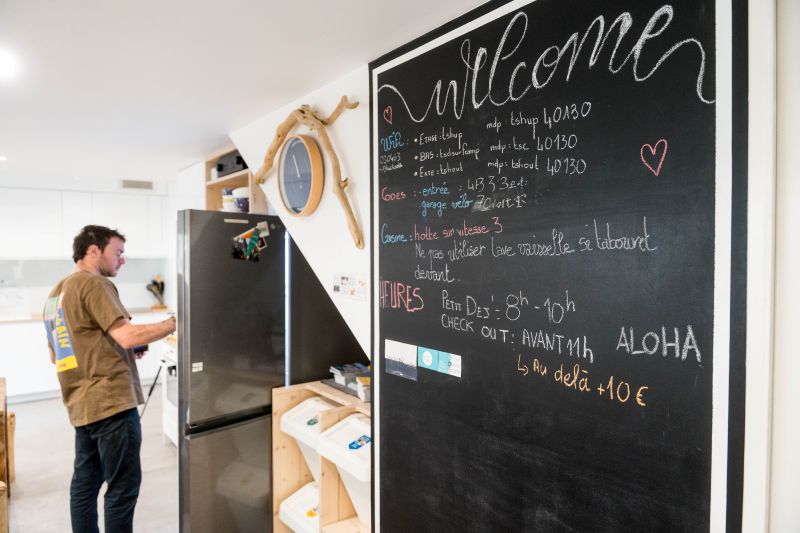 welcome
WiFi : • ETAGE : tshup mdp : tshup 40130
• BAS : mdp : tsc 40130
• EXTE : tshout mdp : tshout 40130
CODES : . entrée :
. garage vélo
Cuisine : hotte sur vitesse 3
Ne pas utiliser lave vaisselle si tabouret
devant.
HEURES PETIT DEJ' : 8h - 10h
CHECK OUT : AVANT 11h
ALOHA
↳ Au delà +10€